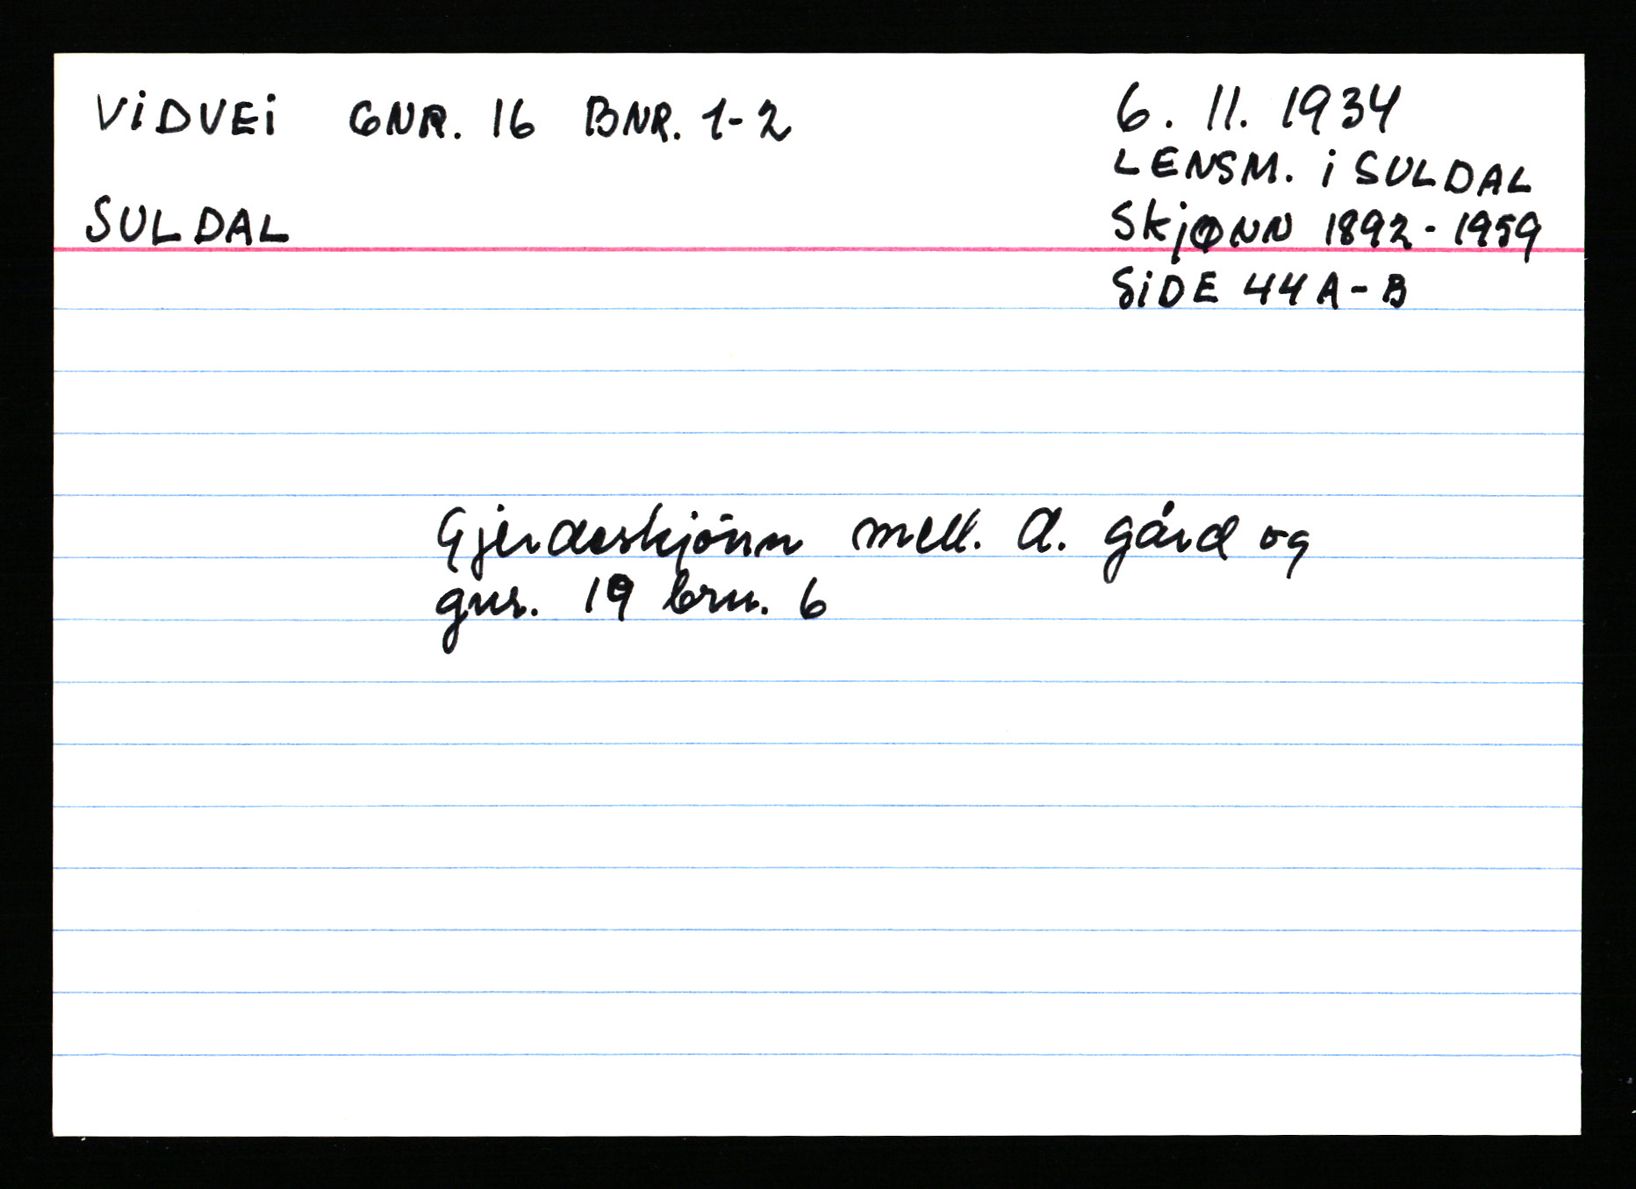 ViDVEi GNR. 16 BNR. 1-2
SULDAL
6. 11. 1934
LENSM. i SULDAL
SkjØNN 1892-1959
SiDE 44A-B
Gjerdeskjönn mell. d. gård og
gnr. 19 brn. 6